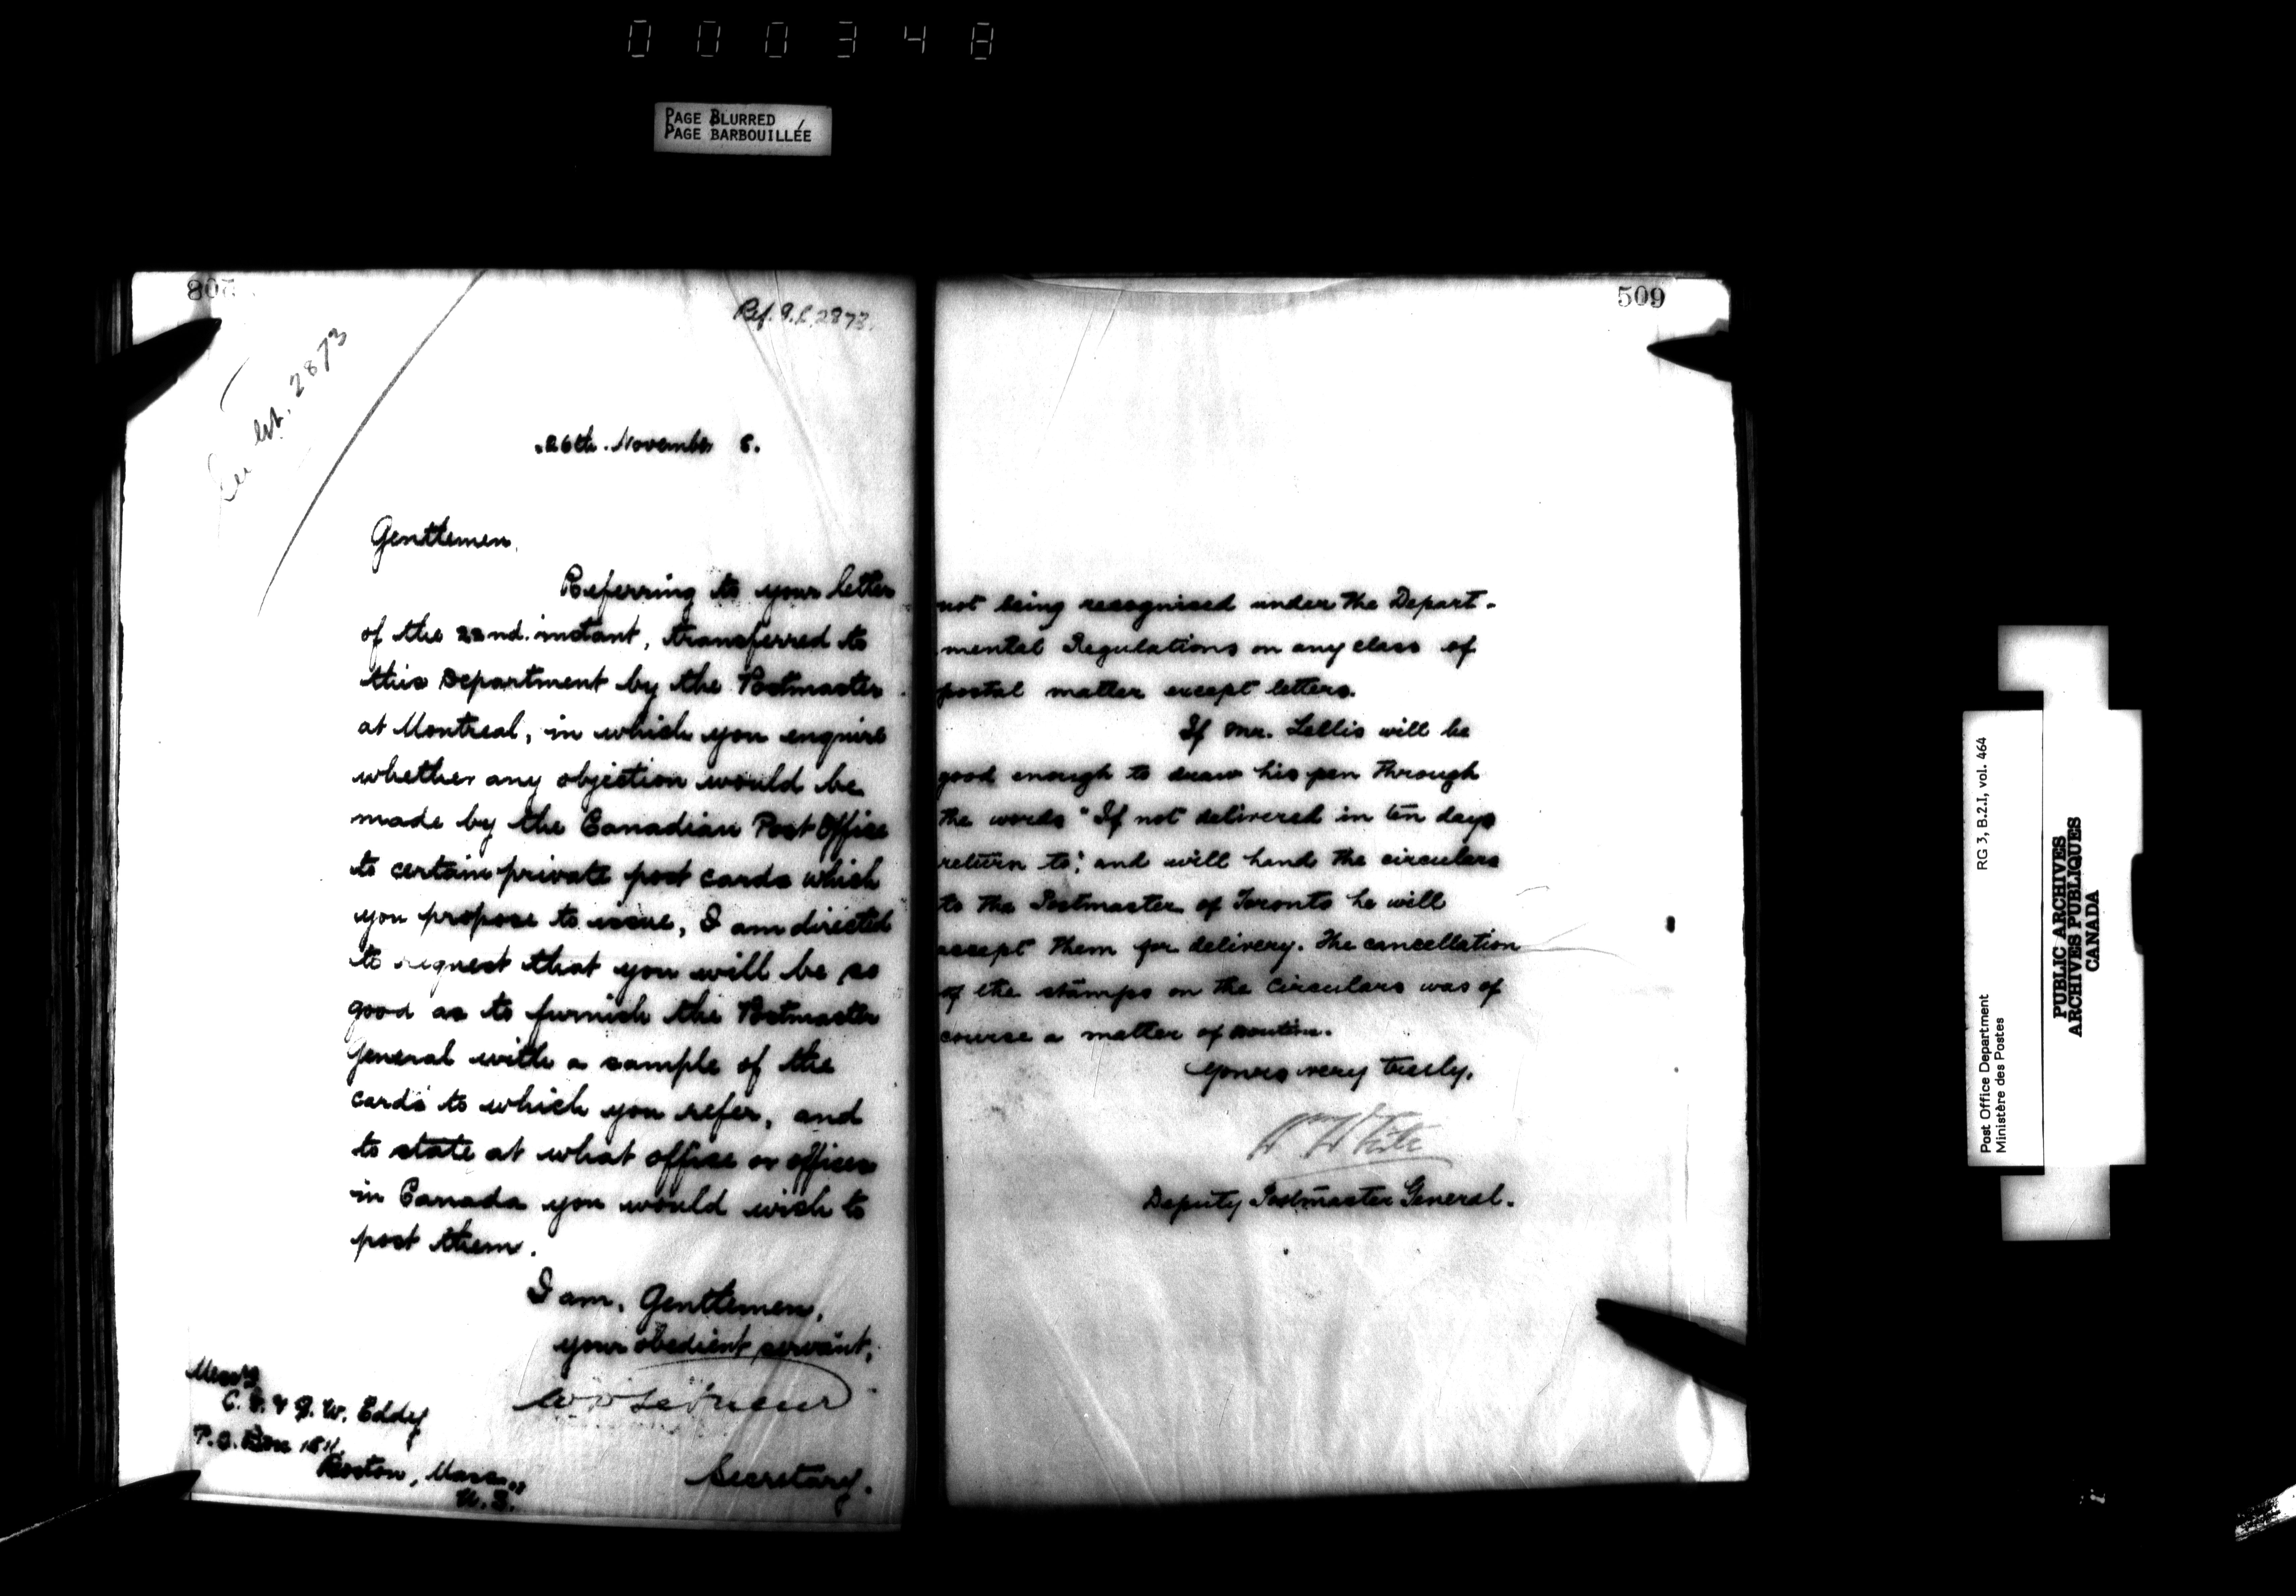 000348
PAGE BLURRED
PAGE BARBOUILLÉE
508
Ref. 2873.
2873
26th. November 8.
Gentlemen,
Referring to your letter
of the 22nd. instant, transferred to
this Department by the Postmaster
at Montreal, in which you enquire
whether any objection would be
made by the Canadian Post Office
to certain private post cards which
you propose to issue, I am directed
to request that you will be so
good as to furnish the Postmaster
General with a sample of the
cards to which you refer, and
to state at what office or offices
in Canada you would wish to
post them.
I am, Gentlemen,
your obedient servant,
Secretary.
Messrs
W. Eddy
P.O. Box
Boston, Mass.,
U.S.
509
not being recognized under the Depart-
mental Regulations on any class of
postal matter except letters.
If Mr. Lellis will be
good enough to draw his pen through
the words "If not delivered in ten days
return to", and will hand the circulars
to the Postmaster of Toronto he will
accept them for delivery. The cancellation
of the stamps on the circulars was of
course a matter of routine.
Yours very truly,
Wm White
Deputy Postmaster General.
Post Office Department
Ministère des Postes
RG 3, B.2.I, vol. 464
PUBLIC ARCHIVES
ARCHIVES PUBLIQUES
CANADA